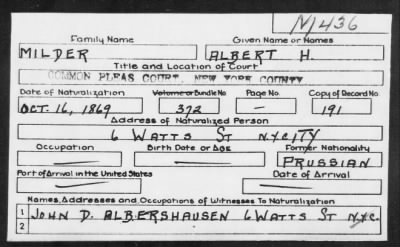 M436
Family Name Given Name or Names
MILDER ALBERT H.
Title and Location of Court
COMMON PLEAS COURT, NEW YORK COUNTY
Date of Naturalization Volume or Bundle No Page No. Copy of Record No
OCT. 16, 1869 372 — 191
Address of Naturalized Person
6 WATTS ST N.Y.CITY
Occupation Birth Date or Age Former Nationality
PRUSSIAN
Port of Arrival in the United States Date of Arrival
Names, Addresses and Occupations of Witnesses To Naturalization
1 JOHN D. ALBERSHAUSEN 6 WATTS ST N.Y.C.
2